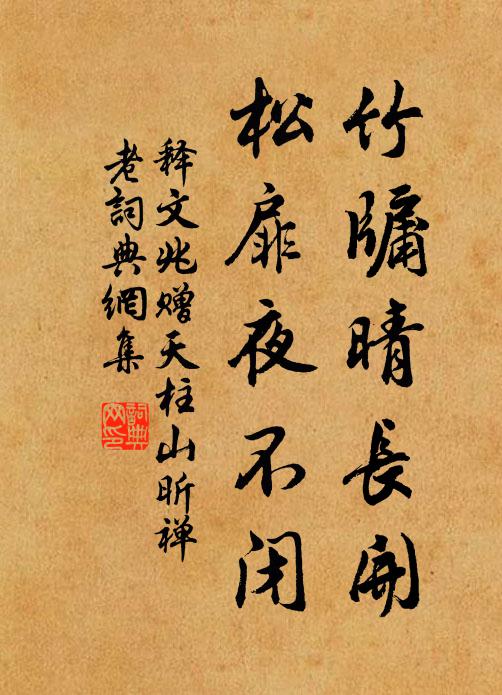 竹牖晴長開
松扉夜不閉
释文兆赠天柱山昕禅
老詞典網集
詞典網印